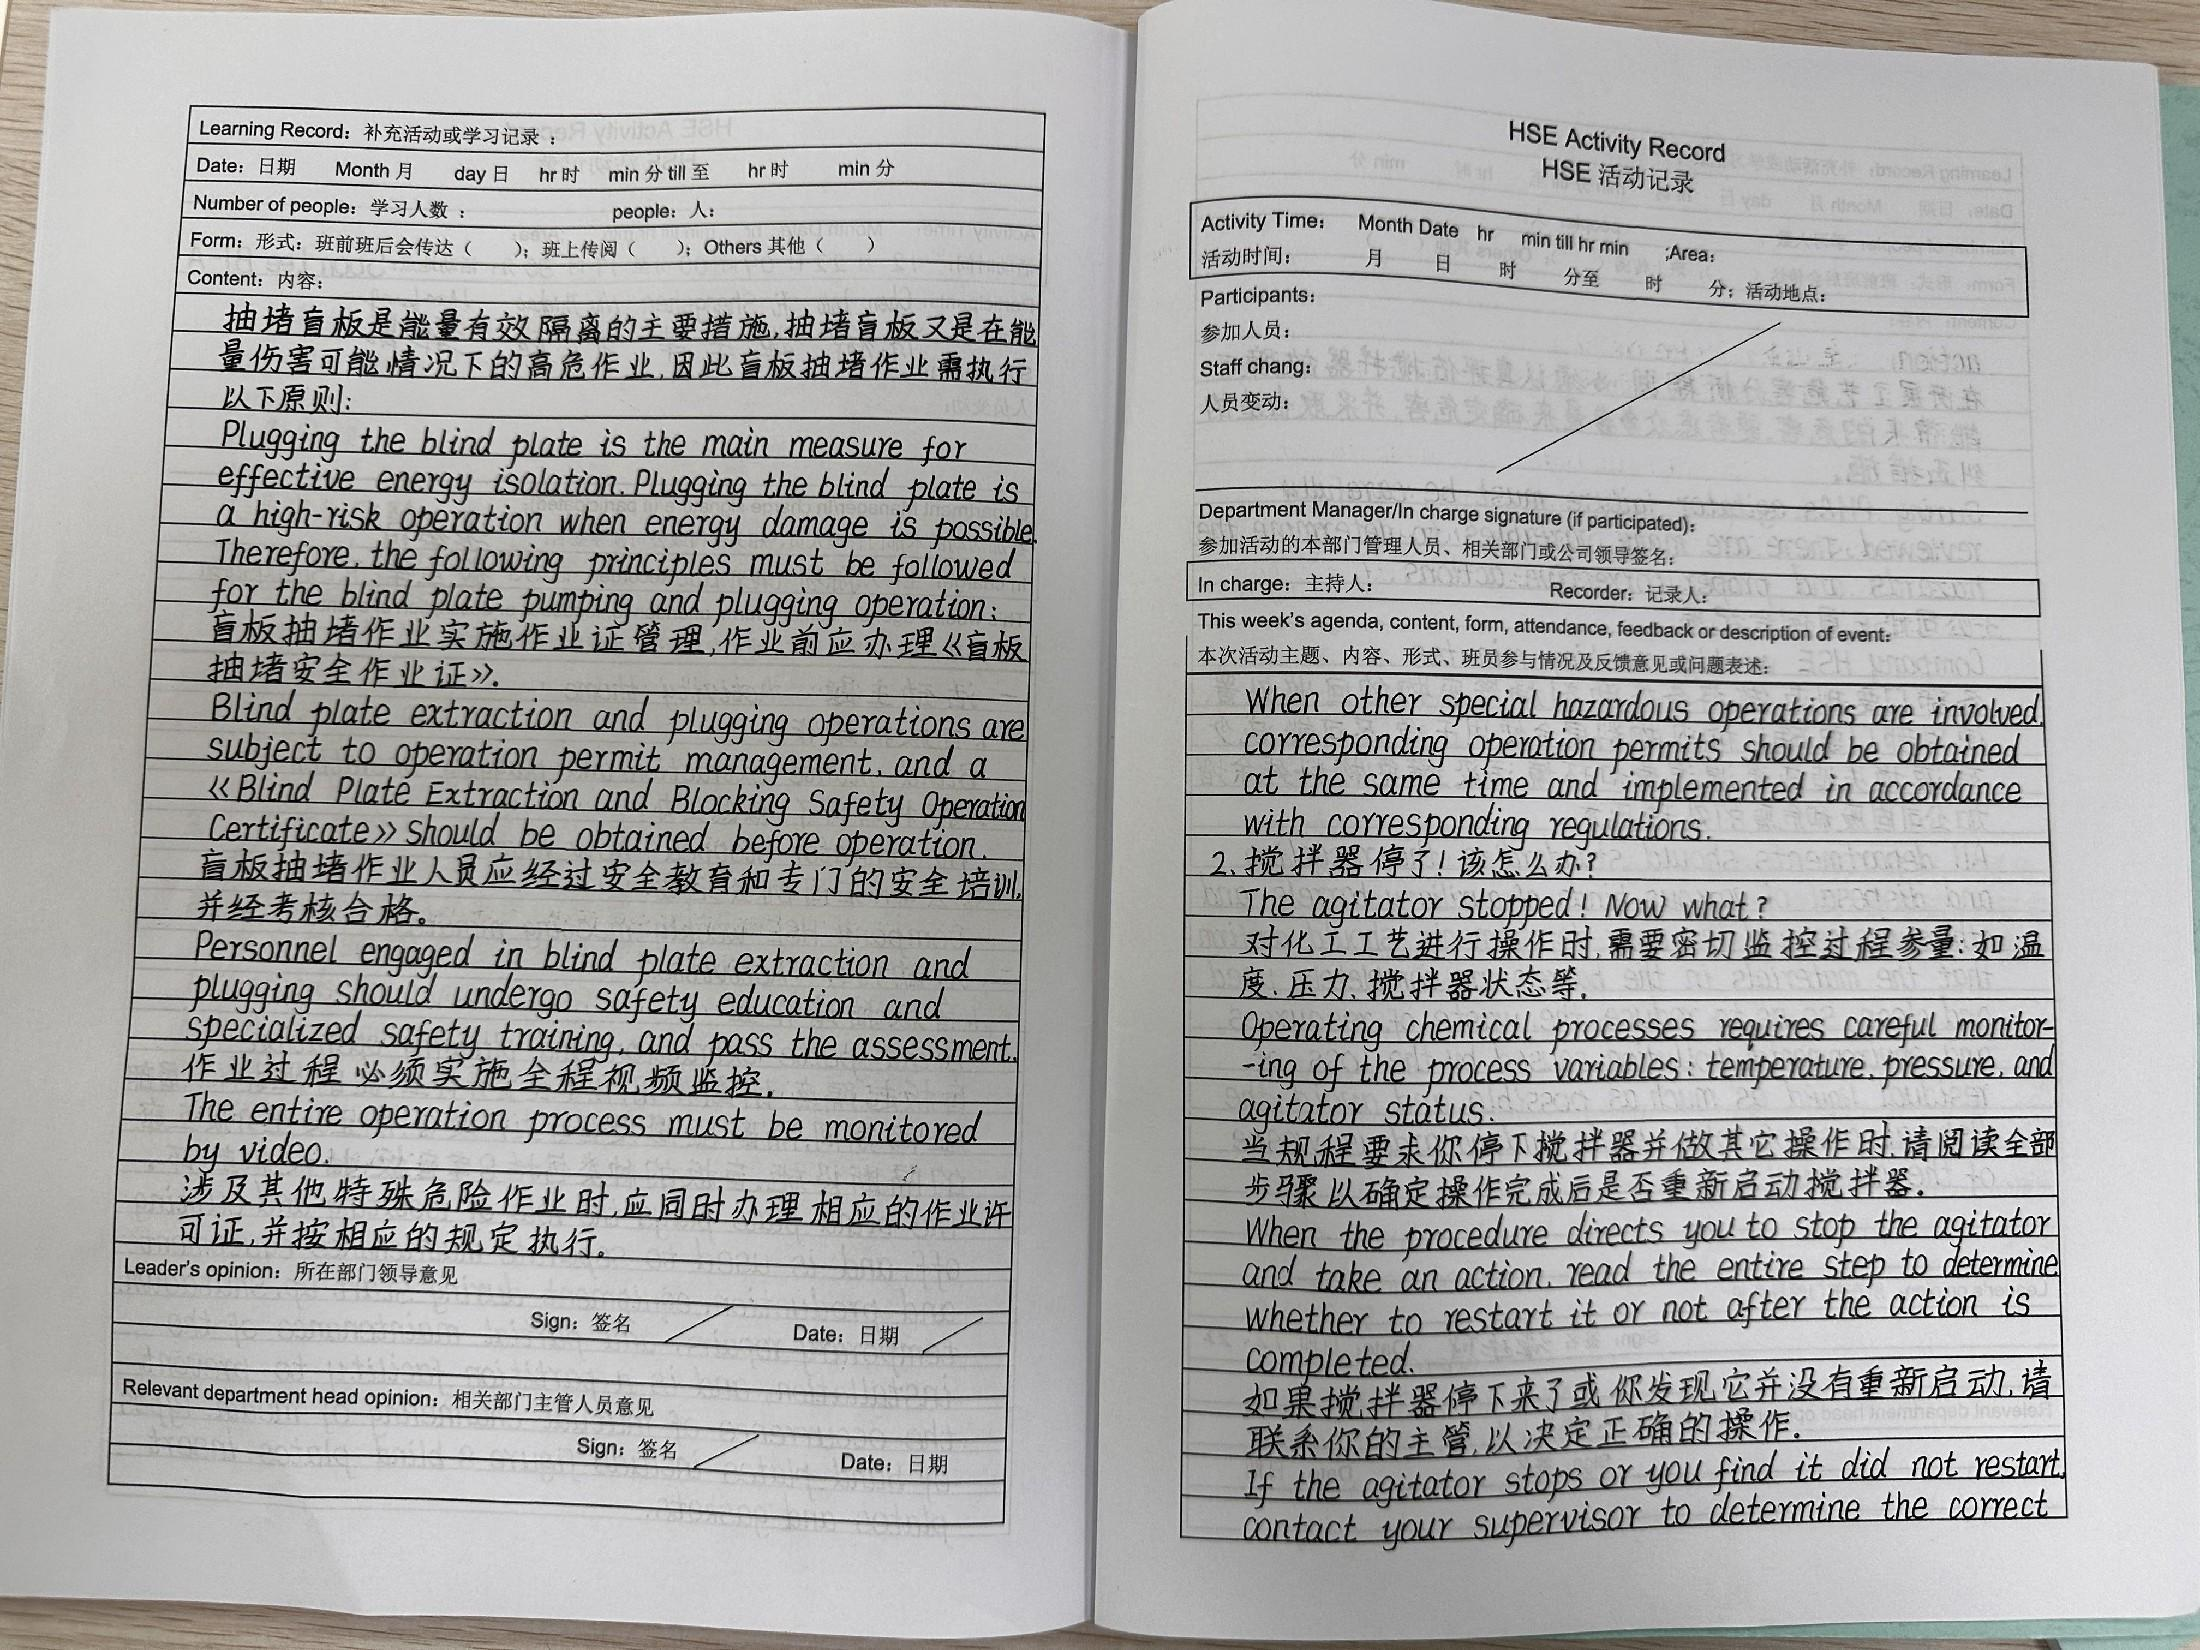 Learning Record：补充活动或学习记录：
Date：日期 Month 月 day 日 hr 时 min 分 till 至 hr 时 min 分
Number of people：学习人数： people：人：
Form：形式：班前班后会传达（ ）；班上传阅（ ）；Others 其他（ ）
Content：内容：
抽堵盲板是能量有效隔离的主要措施,抽堵盲板又是在能
量伤害可能情况下的高危作业,因此盲板抽堵作业需执行
以下原则:
Plugging the blind plate is the main measure for
effective energy isolation. Plugging the blind plate is
a high-risk operation when energy damage is possible.
Therefore, the following principles must be followed
for the blind plate pumping and plugging operation:
盲板抽堵作业实施作业证管理,作业前应办理《盲板
抽堵安全作业证》.
Blind plate extraction and plugging operations are
subject to operation permit management, and a
《Blind Plate Extraction and Blocking Safety Operation
Certificate》 should be obtained before operation.
盲板抽堵作业人员应经过安全教育和专门的安全培训,
并经考核合格。
Personnel engaged in blind plate extraction and
plugging should undergo safety education and
specialized safety training, and pass the assessment.
作业过程必须实施全程视频监控.
The entire operation process must be monitored
by video.
涉及其他特殊危险作业时,应同时办理相应的作业许
可证,并按相应的规定执行。
Leader's opinion：所在部门领导意见
Sign：签名 Date：日期
Relevant department head opinion：相关部门主管人员意见
Sign：签名 Date：日期
HSE Activity Record
HSE 活动记录
Activity Time： Month Date hr min till hr min ;Area：
活动时间： 月 日 时 分至 时 分；活动地点：
Participants:
参加人员：
Staff chang:
人员变动：
Department Manager/In charge signature (if participated)：
参加活动的本部门管理人员、相关部门或公司领导签名：
In charge：主持人： Recorder：记录人：
This week's agenda, content, form, attendance, feedback or description of event：
本次活动主题、内容、形式、班员参与情况及反馈意见或问题表述：
When other special hazardous operations are involved,
corresponding operation permits should be obtained
at the same time and implemented in accordance
with corresponding regulations.
2.搅拌器停了!该怎么办?
The agitator stopped! Now what?
对化工工艺进行操作时,需要密切监控过程参量:如温
度、压力、搅拌器状态等.
Operating chemical processes requires careful monitor-
-ing of the process variables: temperature, pressure, and
agitator status.
当规程要求你停下搅拌器并做其它操作时,请阅读全部
步骤以确定操作完成后是否重新启动搅拌器.
When the procedure directs you to stop the agitator
and take an action, read the entire step to determine
whether to restart it or not after the action is
completed.
如果搅拌器停下来了或你发现它并没有重新启动,请
联系你的主管,以决定正确的操作.
If the agitator stops or you find it did not restart,
contact your supervisor to determine the correct